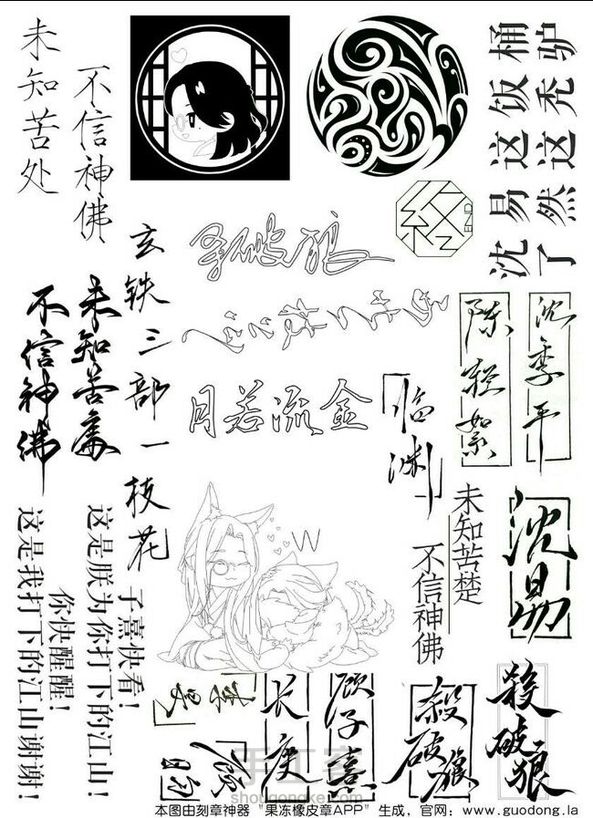 未知苦处
不信神佛
沈易这饭桶
了然这秃驴
终
END
杀破狼
玄铁三部一枝花
未知苦處
不信神佛
月若流金
陈轻絮
沈季平
临渊
未知苦楚
不信神佛
沈易
子熹快看！
这是朕为你打下的江山！
你快醒醒！
这是我打下的江山谢谢！
长庚
顾子熹
殺破狼
殺破狼
顾昀
手工客
shougongke.com
本图由刻章神器 "果冻橡皮章APP" 生成，官网：www.guodong.la